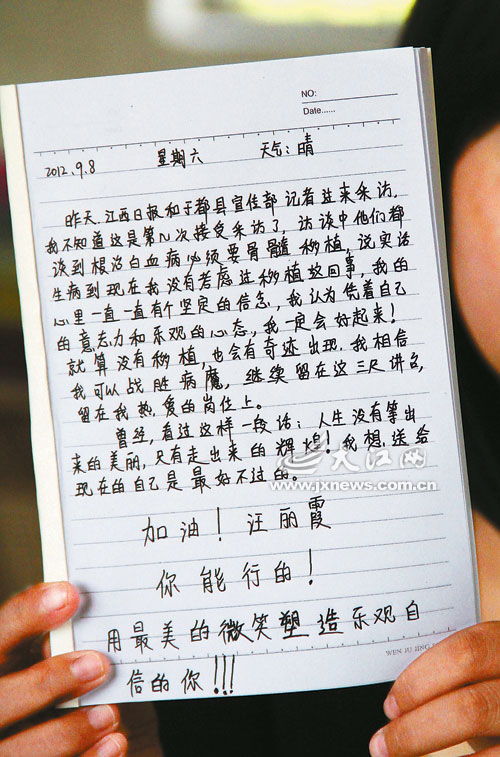 NO:
Date......
2012.9.8 星期六 天气:晴
昨天,江西日报和于都县宣传部记者过来采访,
我不知道这是第N次接受采访了,访谈中他们都
谈到根治白血病必须要骨髓移植,说实话
生病到现在我没有考虑过移植这回事,我的
心里一直一直有个坚定的信念,我认为凭着自己
的意志力和乐观的心态,我一定会好起来!
就算没有移植,也会有奇迹出现.我相信
我可以战胜病魔,继续留在这三尺讲台,
留在我热爱的岗位上。
曾经,看过这样一段话:人生没有等出
来的美丽,只有走出来的辉煌!我想,送给
现在的自己是最好不过的。
大江网
www.jxnews.com.cn
加油!汪丽霞
你能行的!
用最美的微笑塑造乐观自
信的你!!!